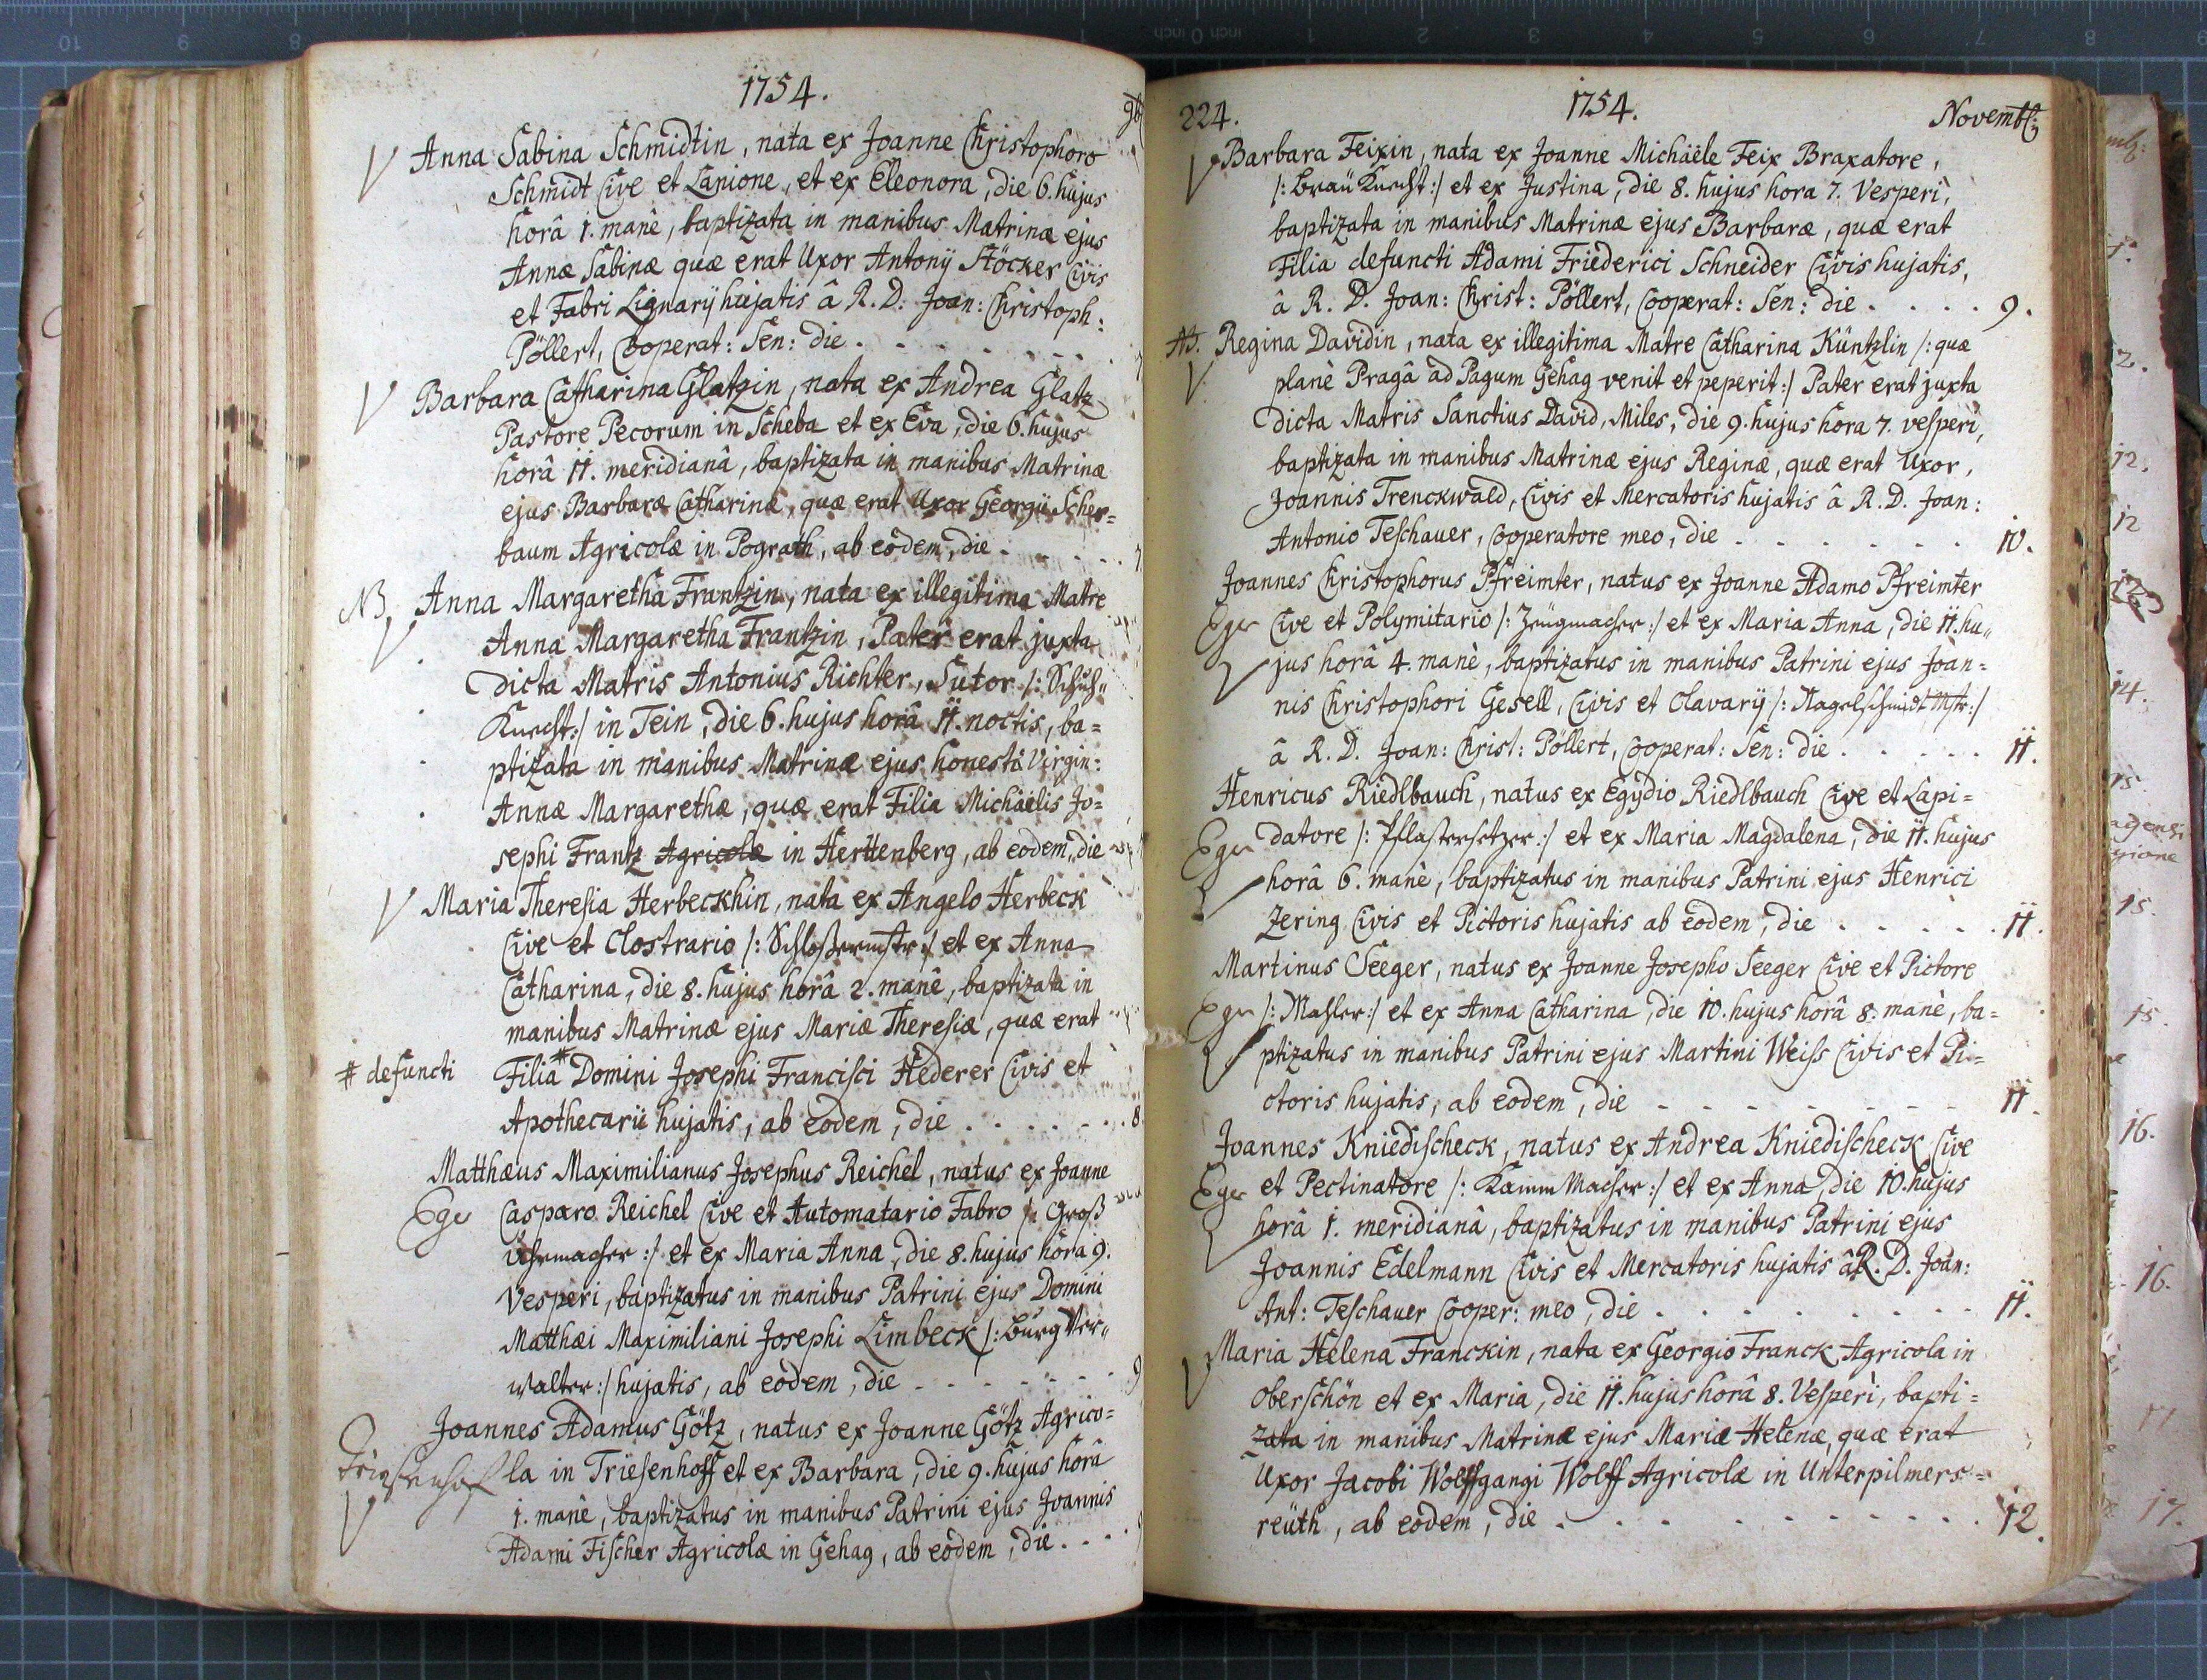 1754.
Anna Sabina Schmidtin, nata ex Joanne Christophoro
Schmidt Cive et Lanione, et ex Eleonora, die 6. hujus
horâ 1. manè, baptizata in manibus Matrinæ ejus
Annæ Sabinæ quæ erat Uxor Antonij Stöcker Civis
et Fabri Lignarij hujatis â R. D. Joan: Christoph:
Pöllert, Cooperat: Sen: die . . . . . . . 7
Barbara Catharina Glatzin, nata ex Andrea Glatz
Pastore Pecorum in Scheba et ex Eva, die 6. hujus
horâ 11. meridianâ, baptizata in manibus Matrinæ
ejus Barbaræ Catharinæ, quæ erat Uxor Georgii Scher=
baum Agricolæ in Pograth, ab eôdem, die . . . . 7.
NB. Anna Margaretha Frantzin, nata ex illegitima Matre
Anna Margaretha Frantzin, Pater erat juxta
dicta Matris Antonius Richter, Sutor /: Schuh=
Knecht :/ in Tein, die 6. hujus horâ 11. noctis, ba=
ptizata in manibus Matrinæ ejus honestæ Virgin:
Annæ Margarethæ, quæ erat Filia Michaëlis Jo=
sephi Frantz Agricolæ in Herttenberg, ab eodem, die
Maria Theresia Herbeckhin, nata ex Angelo Herbeck
Cive et Clostrario /: Schlossermstr :/ et ex Anna
Catharina, die 8. hujus horâ 2. manê, baptizata in
manibus Matrinæ ejus Mariæ Theresiæ, quæ erat
# defuncti Filia # Domini Josephi Francisci Hederer Civis et
Apothecarii hujatis, ab eodem, die . . . . . . . 8
Matthæus Maximilianus Josephus Reichel, natus ex Joanne
Eger Casparo Reichel Cive et Automatario Fabro /: Groß
Uhrmacher :/ et ex Maria Anna, die 8. hujus hora 9.
Vesperi, baptizatus in manibus Patrini ejus Domini
Matthæi Maximiliani Josephi Limbeck /: Burg Ver=
walter :/ hujatis, ab eodem, die . . . . . . . 9
Joannes Adamus Götz, natus ex Joanne Götz Agrico=
Triesenhof la in Triesenhoff et ex Barbara, die 9. hujus horâ
1. manê, baptizatus in manibus Patrini ejus Joannis
Adami Fischer Agricolæ in Gehag, ab eôdem, die . . .
224. 1754. Novemb:
Barbara Feixin, nata ex Joanne Michaële Feix Braxatore,
/: Bräu Knecht :/ et ex Justina, die 8. hujus hora 7. Vesperi,
baptizata in manibus Matrinæ ejus Barbaræ, quæ erat
Filia defuncti Adami Friederici Schneider Civis hujatis,
â R. D. Joan: Christ: Pöllert, Cooperat: Sen: die . . . . 9.
NB. Regina Davidin, nata ex illegitima Matre Catharina Küntzlin /: quæ
planè Pragâ ad Pagum Gehag venit et peperit :/ Pater erat juxta
dicta Matris Sanctius David, Miles, die 9. hujus hora 7. vesperi,
baptizata in manibus Matrinæ ejus Reginæ, quæ erat Uxor,
Joannis Trenckwald, Civis et Mercatoris hujatis â R. D. Joan:
Antonio Teschauer, Cooperatore meo, die . . . . . . . 10.
Joannes Christophorus Pfreimter, natus ex Joanne Adamo Pfreimter
Eger Cive et Polymitario /: Zeügmacher :/ et ex Maria Anna, die 11. hu=
jus horâ 4. manè, baptizatus in manibus Patrini ejus Joan=
nis Christophori Gesell, Civis et Clavarij /: Nagelschmidt Mstr :/
â R. D. Joan: Christ: Pöllert, Cooperat: Sen: die . . . . . 11.
Henricus Riedlbauch, natus ex Egydio Riedlbauch Cive et Lapi=
Eger datore /: Pflastersetzer :/ et ex Maria Magdalena, die 11. hujus
horâ 6. manè, baptizatus in manibus Patrini ejus Henrici
Zering Civis et Pictoris hujatis ab eôdem, die . . . . . 11.
Martinus Seeger, natus ex Joanne Josepho Seeger Cive et Pictore
Eger /: Mahler :/ et ex Anna Catharina, die 10. hujus horâ 8. manè, ba=
ptizatus in manibus Patrini ejus Martini Weiss Civis et Pi=
ctoris hujatis, ab eodem, die . . . . . . . . 11.
Joannes Kniedischeck, natus ex Andrea Kniedischeck Cive
Eger et Pectinatore /: Kamm Macher :/ et ex Anna, die 10. hujus
horâ 1. meridianâ, baptizatus in manibus Patrini ejus
Joannis Edelmann Civis et Mercatoris hujatis â R. D. Joan:
Ant: Teschauer Cooper: meo, die . . . . . . . . . 11.
Maria Helena Franckin, nata ex Georgio Franck Agricola in
Oberschön et ex Maria, die 11. hujus horâ 8. Vesperi, bapti=
zata in manibus Matrinæ ejus Mariæ Helenæ, quæ erat
Uxor Jacobi Wolffgangi Wolff Agricolæ in Unterpilmers=
reüth, ab eôdem, die . . . . . . . . . . 12.